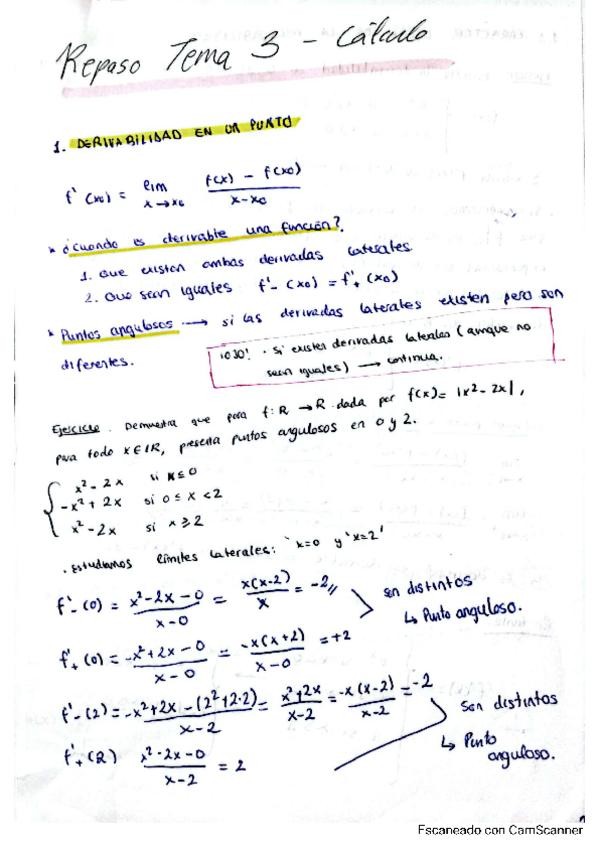 Repaso Tema 3 - Cálculo
1. DERIVABILIDAD EN UN PUNTO
f'(x0) = lim x→x0 f(x) - f(x0) / x-x0
* ¿Cuando es derivable una función?.
1. Que existan ambas derivadas laterales.
2. Que sean iguales f'-(x0) = f'+(x0)
* Puntos angulosos → si las derivadas laterales existen pero son
diferentes.
¡OJO! · Si existen derivadas laterales (aunque no
sean iguales) → continua.
Ejercicio. Demuestra que para f: R → R dada por f(x) = |x²-2x|,
para todo x∈IR, presenta puntos angulosos en 0 y 2.
x²-2x si x≤0
-x²+2x si 0≤x<2
x²-2x si x≥2
. Estudiamos límites laterales: 'x=0 y 'x=2'
f'-(0) = x²-2x-0 / x-0 = x(x-2) / x = -2,,
son distintos
↳ Punto anguloso.
f'+(0) = -x²+2x-0 / x-0 = -x(x+2) / x-0 = +2
f'-(2) = -x²+2x-(2²+2·2) / x-2 = x²+2x / x-2 = -x(x-2) / x-2 = -2
son distintos
↳ Punto
anguloso.
f'+(2) x²-2x-0 / x-2 = 2
Escaneado con CamScanner